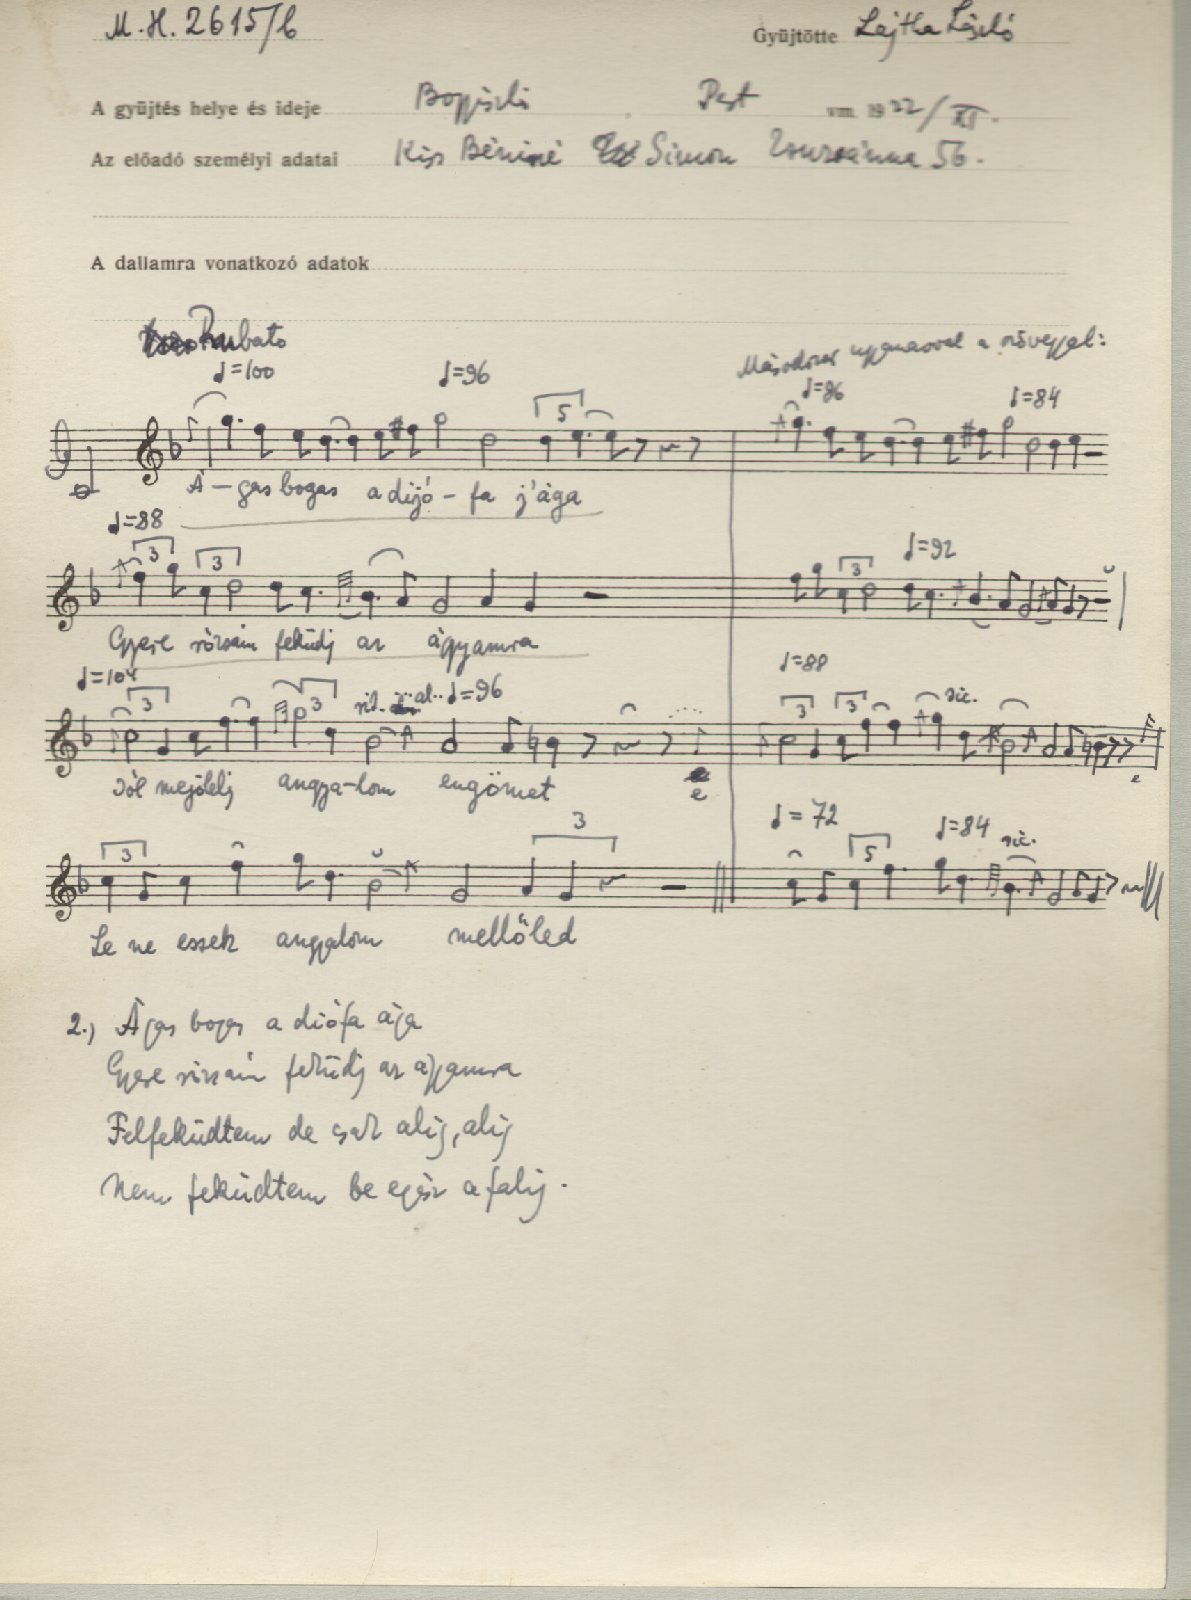 M.H. 2615/b
Gyűjtötte Lajtha László
A gyüjtés helye és ideje Bogyiszló Pest vm. 1922/XI.
Az előadó személyi adatai Kiss Béniné Simon Zsuzsánna 56.
A dallamra vonatkozó adatok
Rubato
Másodszor ugyanazzal a szöveggel:
♩=100 ♩=96 ♩=86 ♩=84
5
Á-gas bogas a dijó-fa j'ága
♩=88 3 3 ♩=92 3
Gyere rózsám feküdj az ágyamra
♩=104 3 3 rit. al.. ♩=96 ♩=88 3 3 sic.
Jól megölelj angya-lom engömet e e
3 3 ♩=72 5 ♩=84 sic.
Le ne essek angyalom mellőled
2., Ágas bogas a diófa ága
Gyere rózsám feküdj az ágyamra
Felfeküdtem de csak alig, alig
Nem feküdtem be egész a falig.